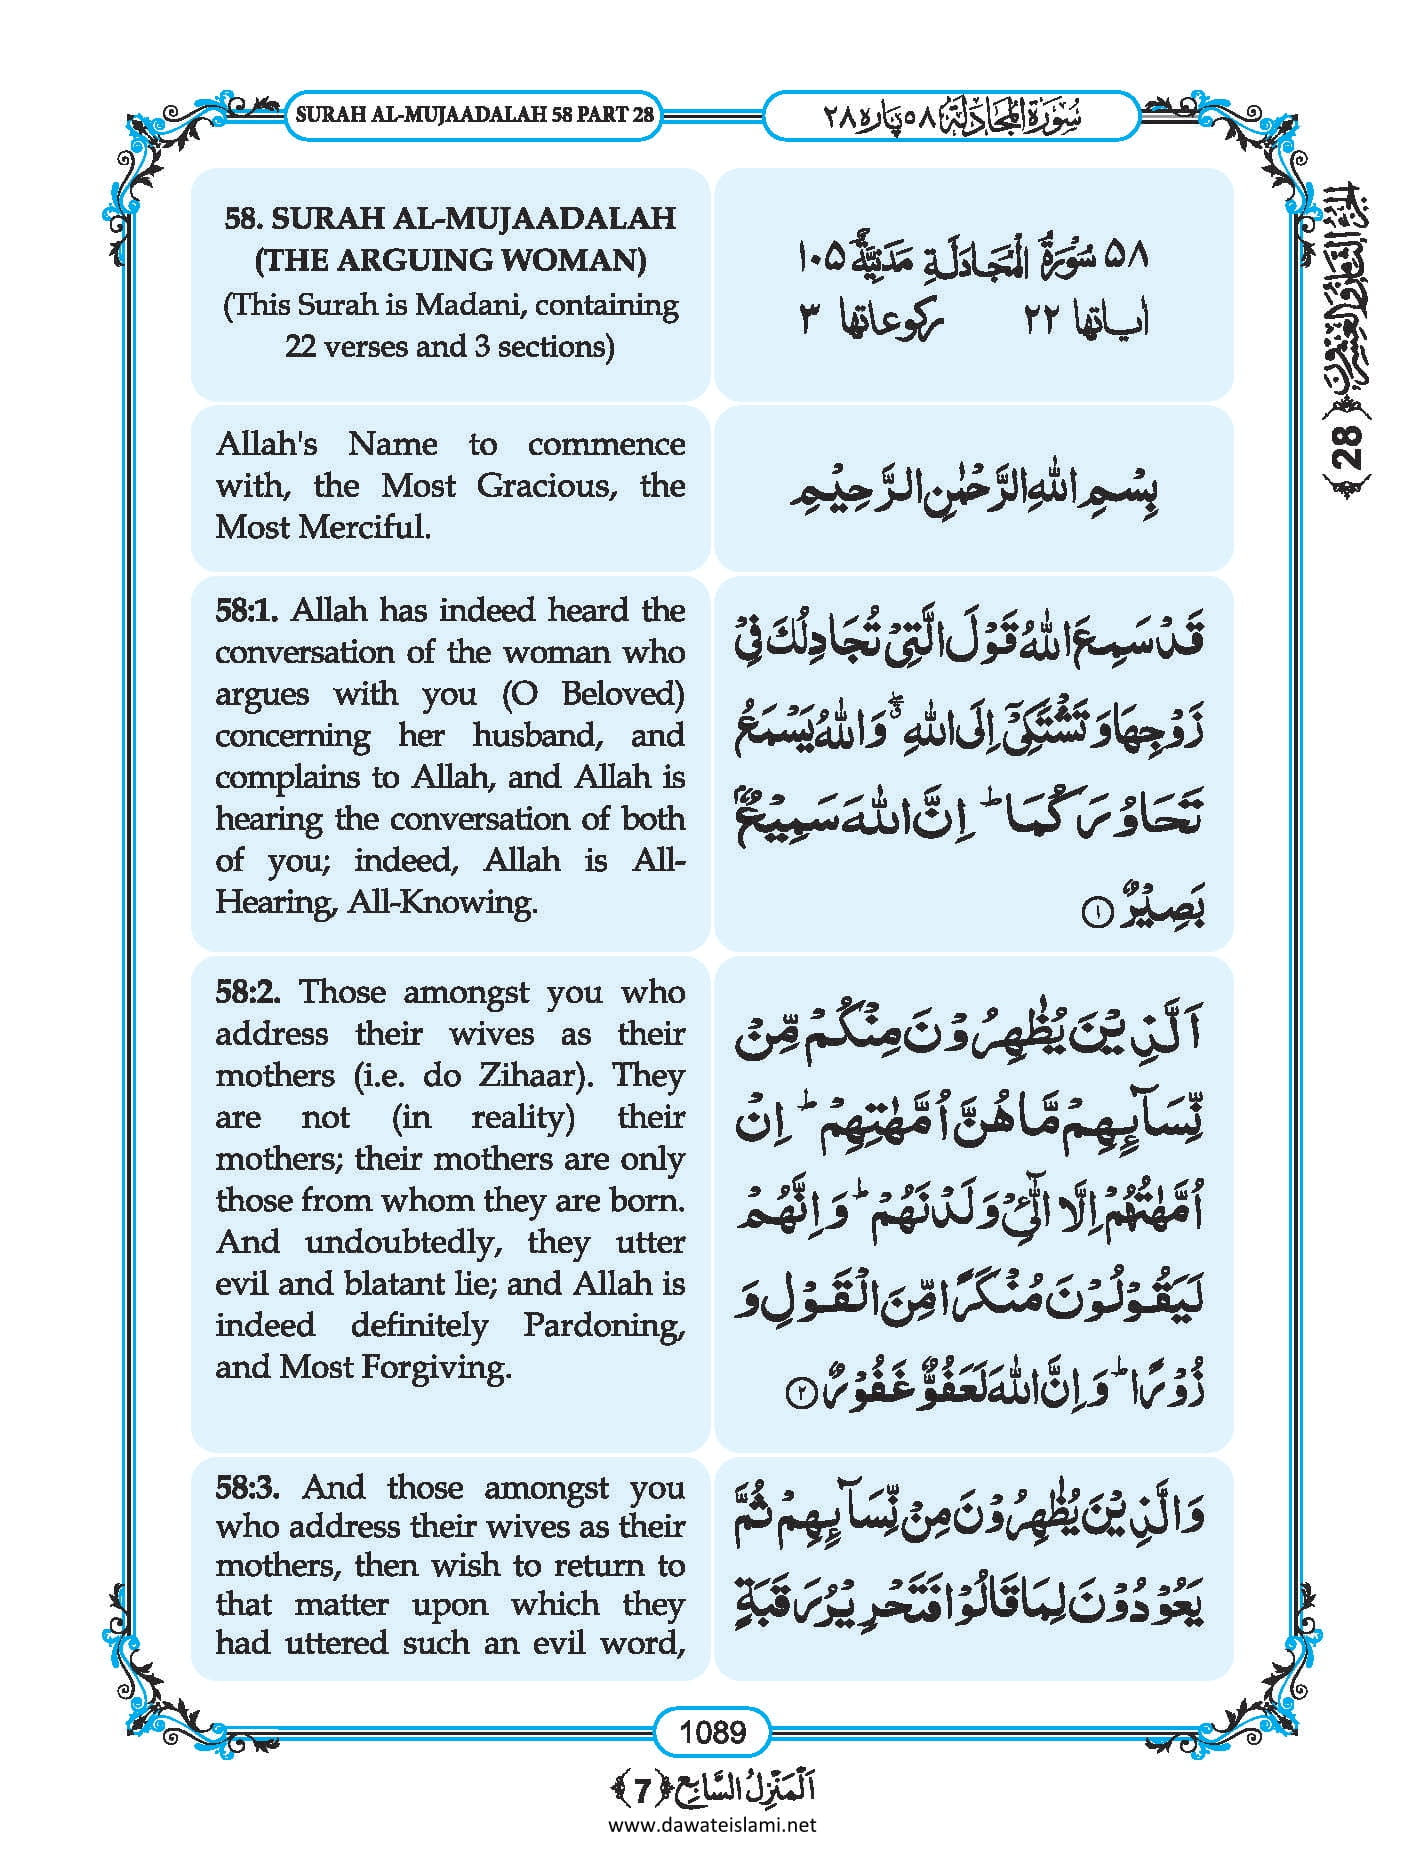 SURAH AL-MUJAADALAH 58 PART 28
سُوْرَةُ الْمُجَادَلَة ۵۸ پارہ ۲۸
58. SURAH AL-MUJAADALAH
(THE ARGUING WOMAN)
(This Surah is Madani, containing
22 verses and 3 sections)
۵۸ سُوْرَةُ الْمُجَادَلَةِ مَدَنِيَّةٌ ۱۰۵
اٰیاتها ۲۲ رکوعاتها ۳
Allah's Name to commence
with, the Most Gracious, the
Most Merciful.
بِسْمِ اللهِ الرَّحْمٰنِ الرَّحِيْمِ
58:1. Allah has indeed heard the
conversation of the woman who
argues with you (O Beloved)
concerning her husband, and
complains to Allah, and Allah is
hearing the conversation of both
of you; indeed, Allah is All-
Hearing, All-Knowing.
قَدْ سَمِعَ اللهُ قَوْلَ الَّتِیْ تُجَادِلُكَ فِیْ
زَوْجِهَا وَ تَشْتَكِیْۤ اِلَى اللهِ ۖۗ وَ اللهُ یَسْمَعُ
تَحَاوُرَكُمَا ؕ اِنَّ اللهَ سَمِیْعٌۢ
بَصِیْرٌ ﴿۱﴾
58:2. Those amongst you who
address their wives as their
mothers (i.e. do Zihaar). They
are not (in reality) their
mothers; their mothers are only
those from whom they are born.
And undoubtedly, they utter
evil and blatant lie; and Allah is
indeed definitely Pardoning,
and Most Forgiving.
اَلَّذِیْنَ یُظٰهِرُوْنَ مِنْكُمْ مِّنْ
نِّسَآىِٕهِمْ مَّا هُنَّ اُمَّهٰتِهِمْ ؕ اِنْ
اُمَّهٰتُهُمْ اِلَّا الّٰٓـِٔیْ وَلَدْنَهُمْ ؕ وَ اِنَّهُمْ
لَیَقُوْلُوْنَ مُنْكَرًا مِّنَ الْقَوْلِ وَ
زُوْرًا ؕ وَ اِنَّ اللهَ لَعَفُوٌّ غَفُوْرٌ ﴿۲﴾
58:3. And those amongst you
who address their wives as their
mothers, then wish to return to
that matter upon which they
had uttered such an evil word,
وَ الَّذِیْنَ یُظٰهِرُوْنَ مِنْ نِّسَآىِٕهِمْ ثُمَّ
یَعُوْدُوْنَ لِمَا قَالُوْا فَتَحْرِیْرُ رَقَبَةٍ
الجزء الثامن والعشرون ﴿28﴾
1089
اَلْمَنْزِلُ السَّابِع ﴿7﴾
www.dawateislami.net